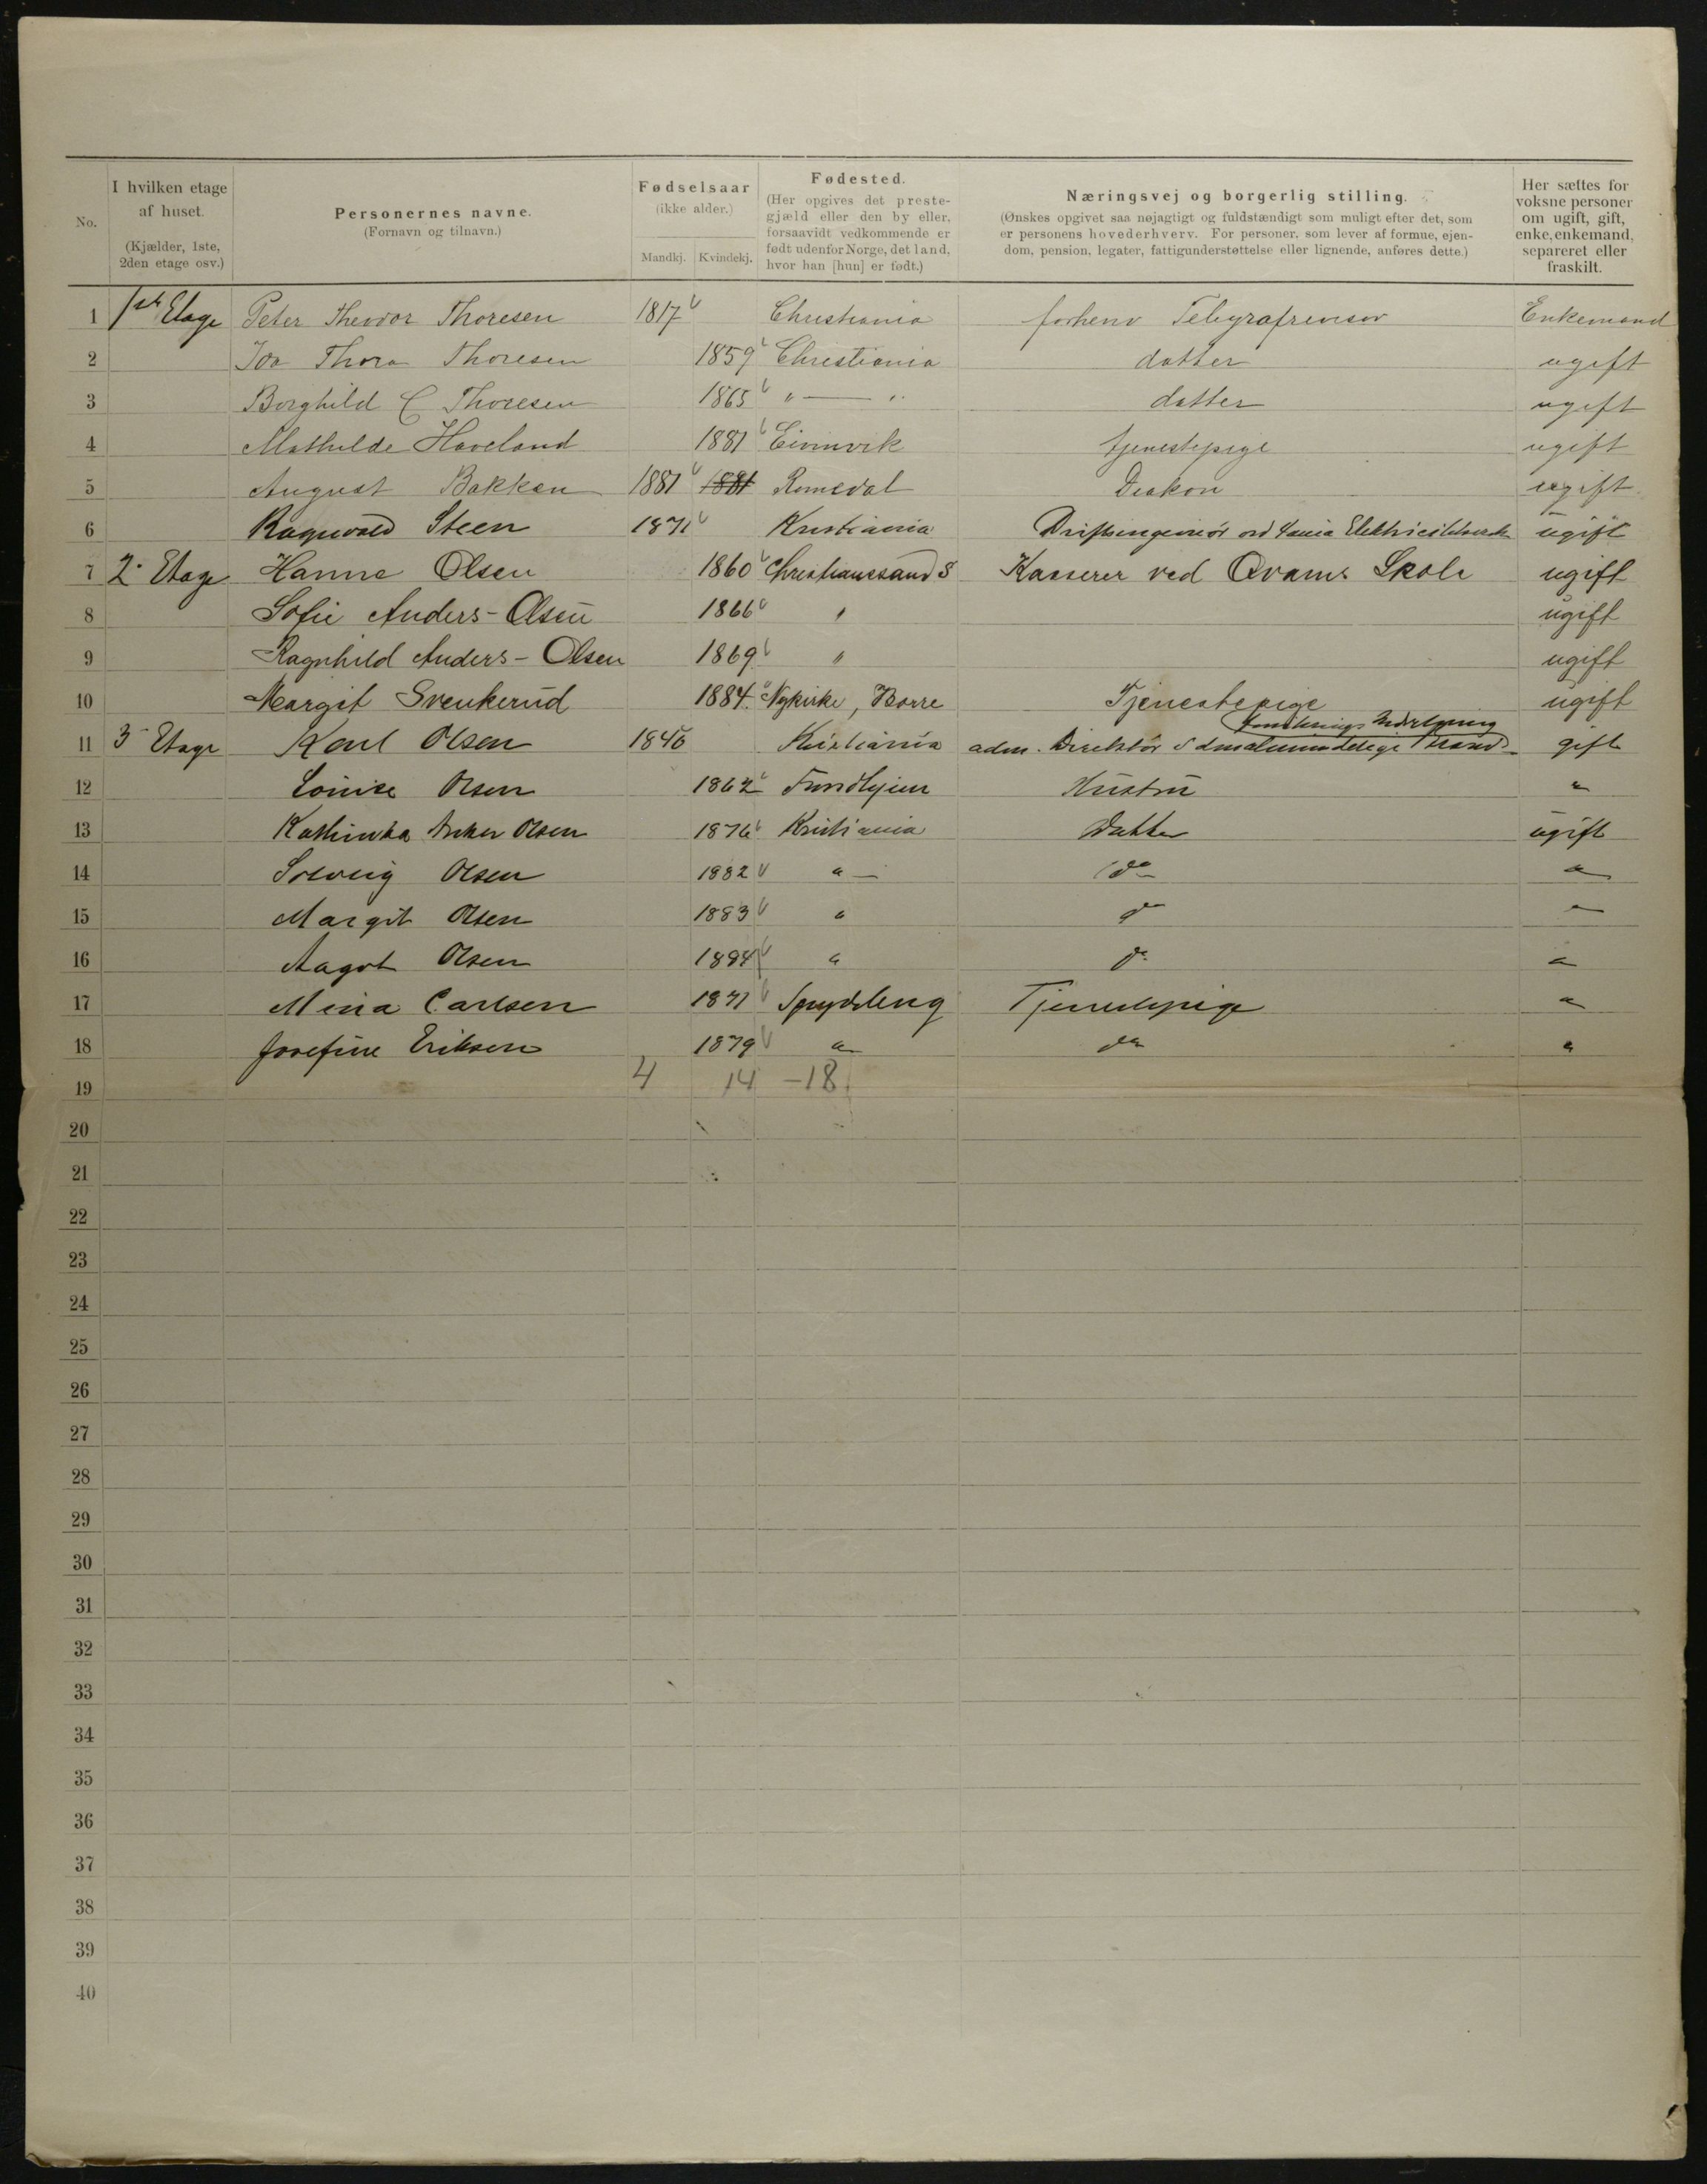 I hvilken etage af huset. (Kjælder, 1ste, 2den etage osv.)
No.
Personernes navne. (Fornavn og tilnavn.)
Fødselsaar (ikke alder.)
Mandkj. Kvindekj.
Fødested. (Her opgives det prestegjæld eller den by eller, forsaavidt vedkommende er født udenfor Norge, det land, hvor han [hun] er født.)
Næringsvej og borgerlig stilling.
(Ønskes opgivet saa nøjagtigt og fuldstændigt som muligt efter det, som er personens hovederhverv. For personer, som lever af formue, ejendom, pension, legater, fattigunderstøttelse eller lignende, anføres dette.)
Her sættes for voksne personer om ugift, gift, enke, enkemand, separeret eller fraskilt.
1 1ste Etage Peter Theodor Thoresen 1817 Christiania forhenv Telegrafrevisor Enkemand
2 Ida Thora Thoresen 1859 Christiania datter ugift
3 Borghild C Thoresen 1865 " — " datter ugift
4 Mathilde Haveland 1881 Eivinvik tjenestepige ugift
5 August Bakken 1881 1881 Romedal Diakon ugift
6 Ragnvald Steen 1871 Kristiania Driftsingeniør ugift
7 2. Etage Hanna Olsen 1860 Christianssand S Kasserer ved Qvams Skole ugift
8 Sofie Anders-Olsen 1866 " ugift
9 Ragnhild Anders-Olsen 1869 " ugift
10 Margit Svenkerud 1884. Nykirke, Borre Tjenestepige ugift
11 3 Etage Karl Olsen 1846 Kristiania adm. Direktør gift
12 Louise Olsen 1862 Hustru "
13 Kathinka Anker Olsen 1876 Kristiania Datter ugift
14 Solveig Olsen 1882 " — do "
15 Margit Olsen 1883 " do "
16 Aagot Olsen 1884 " do "
17 Mina Carlsen 1871 Spydeberg Tjenestepige "
18 Josefine Eriksen 1879 " do "
19 4 14 - 18
20
21
22
23
24
25
26
27
28
29
30
31
32
33
34
35
36
37
38
39
40